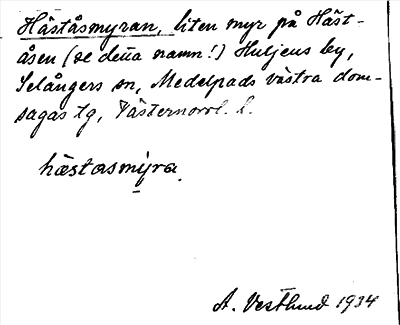 Häståsmyran, liten myr på Häst-
åsen (se detta namn!) Huljens by,
Selångers sn, Medelpads västra dom-
sagas tg, Västernorrl. l.
hæstasmýra.
A. Vestlund 1934